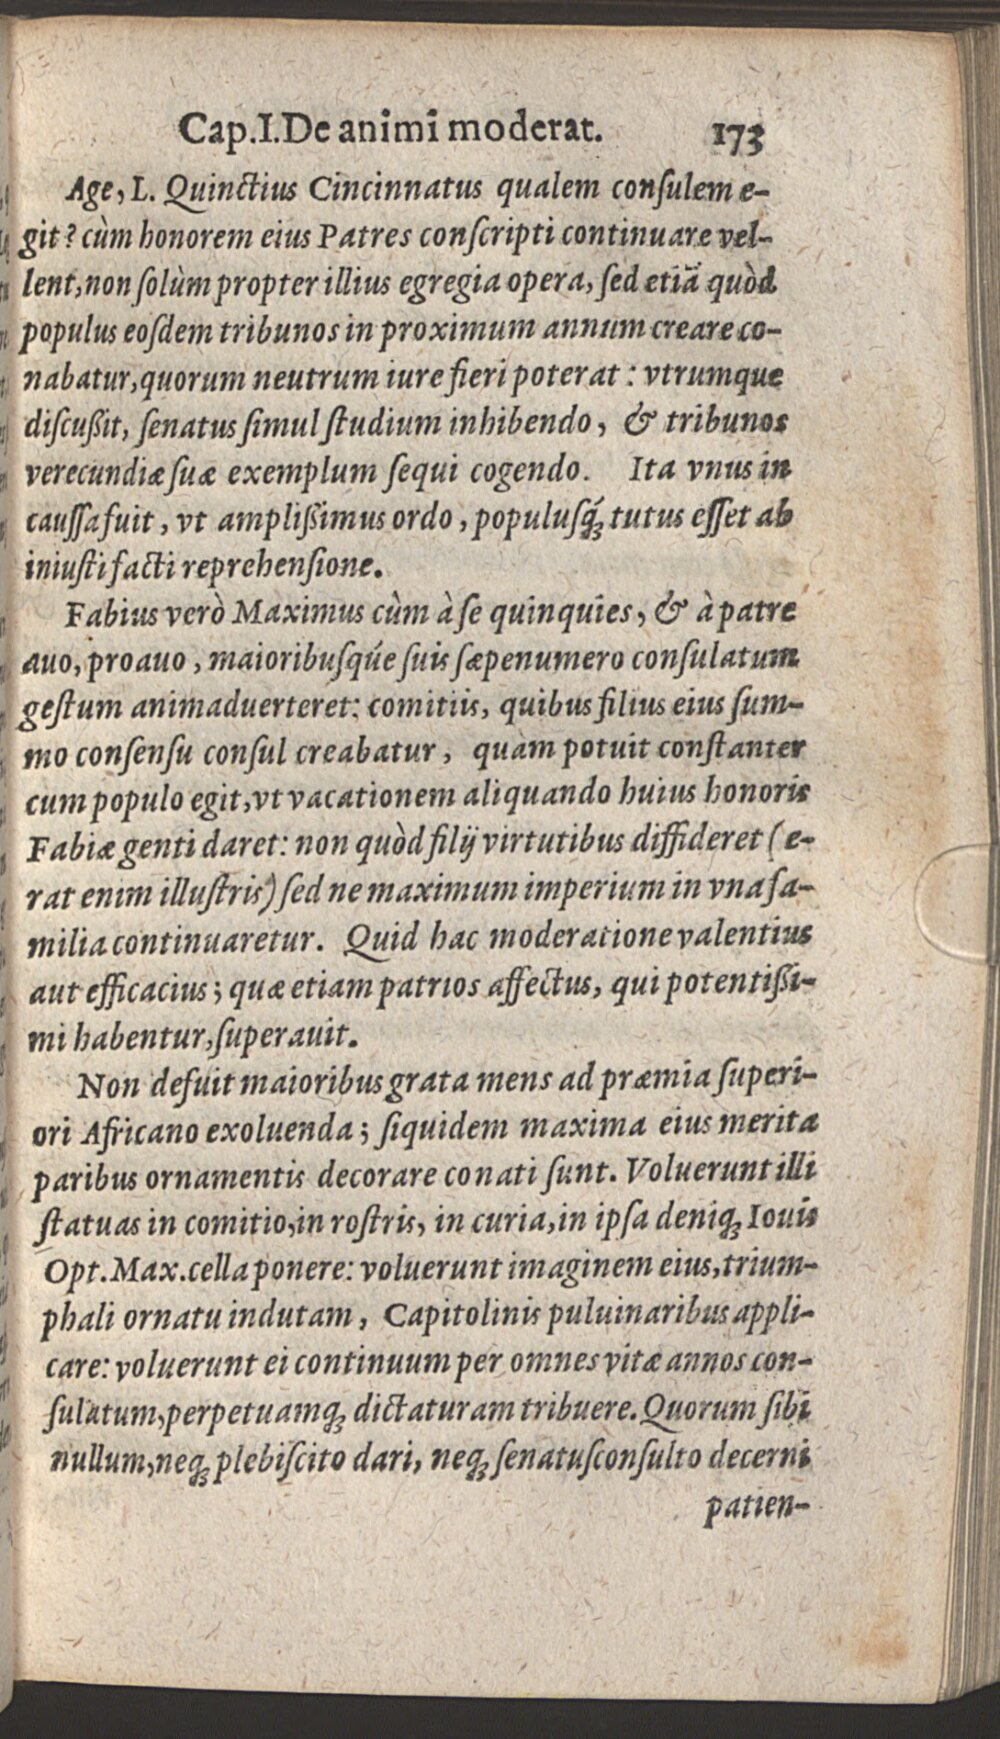 Cap.I.De animi moderat. 173
Age, L. Quinctius Cincinnatus qualem conſulem e-
git? cùm honorem eius Patres conſcripti continuare vel-
lent, non ſolùm propter illius egregia opera, ſed etiã quòd
populus eoſdem tribunos in proximum annum creare co-
nabatur, quorum neutrum iure fieri poterat: vtrumque
diſcußit, ſenatus ſimul ſtudium inhibendo, & tribunos
verecundiæ ſuæ exemplum ſequi cogendo. Ita vnus in
cauſſa fuit, vt amplißimus ordo, populuſq́ꝫ tutus eſſet ab
iniuſti facti reprehenſione.
Fabius verò Maximus cùm à ſe quinquies, & à patre
auo, proauo, maioribuſq́ue ſuis ſæpenumero conſulatum
geſtum animaduerteret: comitiis, quibus filius eius ſum-
mo conſenſu conſul creabatur, quàm potuit conſtanter
cum populo egit, vt vacationem aliquando huius honoris
Fabiæ genti daret: non quòd filij virtutibus diffideret (e-
rat enim illuſtris) ſed ne maximum imperium in vna fa-
milia continuaretur. Quid hac moderatione valentius
aut efficacius; quæ etiam patrios affectus, qui potentißi-
mi habentur, ſuperauit.
Non defuit maioribus grata mens ad præmia ſuperi-
ori Africano exoluenda; ſiquidem maxima eius merita
paribus ornamentis decorare conati ſunt. Voluerunt illi
ſtatuas in comitio, in roſtris, in curia, in ipſa deniqꝫ Iouis
Opt. Max. cella ponere: voluerunt imaginem eius, trium-
phali ornatu indutam, Capitolinis puluinaribus appli-
care: voluerunt ei continuum per omnes vitæ annos con-
ſulatum, perpetuamqꝫ dictaturam tribuere. Quorum ſibi
nullum, neqꝫ plebiſcito dari, neqꝫ ſenatuſconſulto decerni
patien-